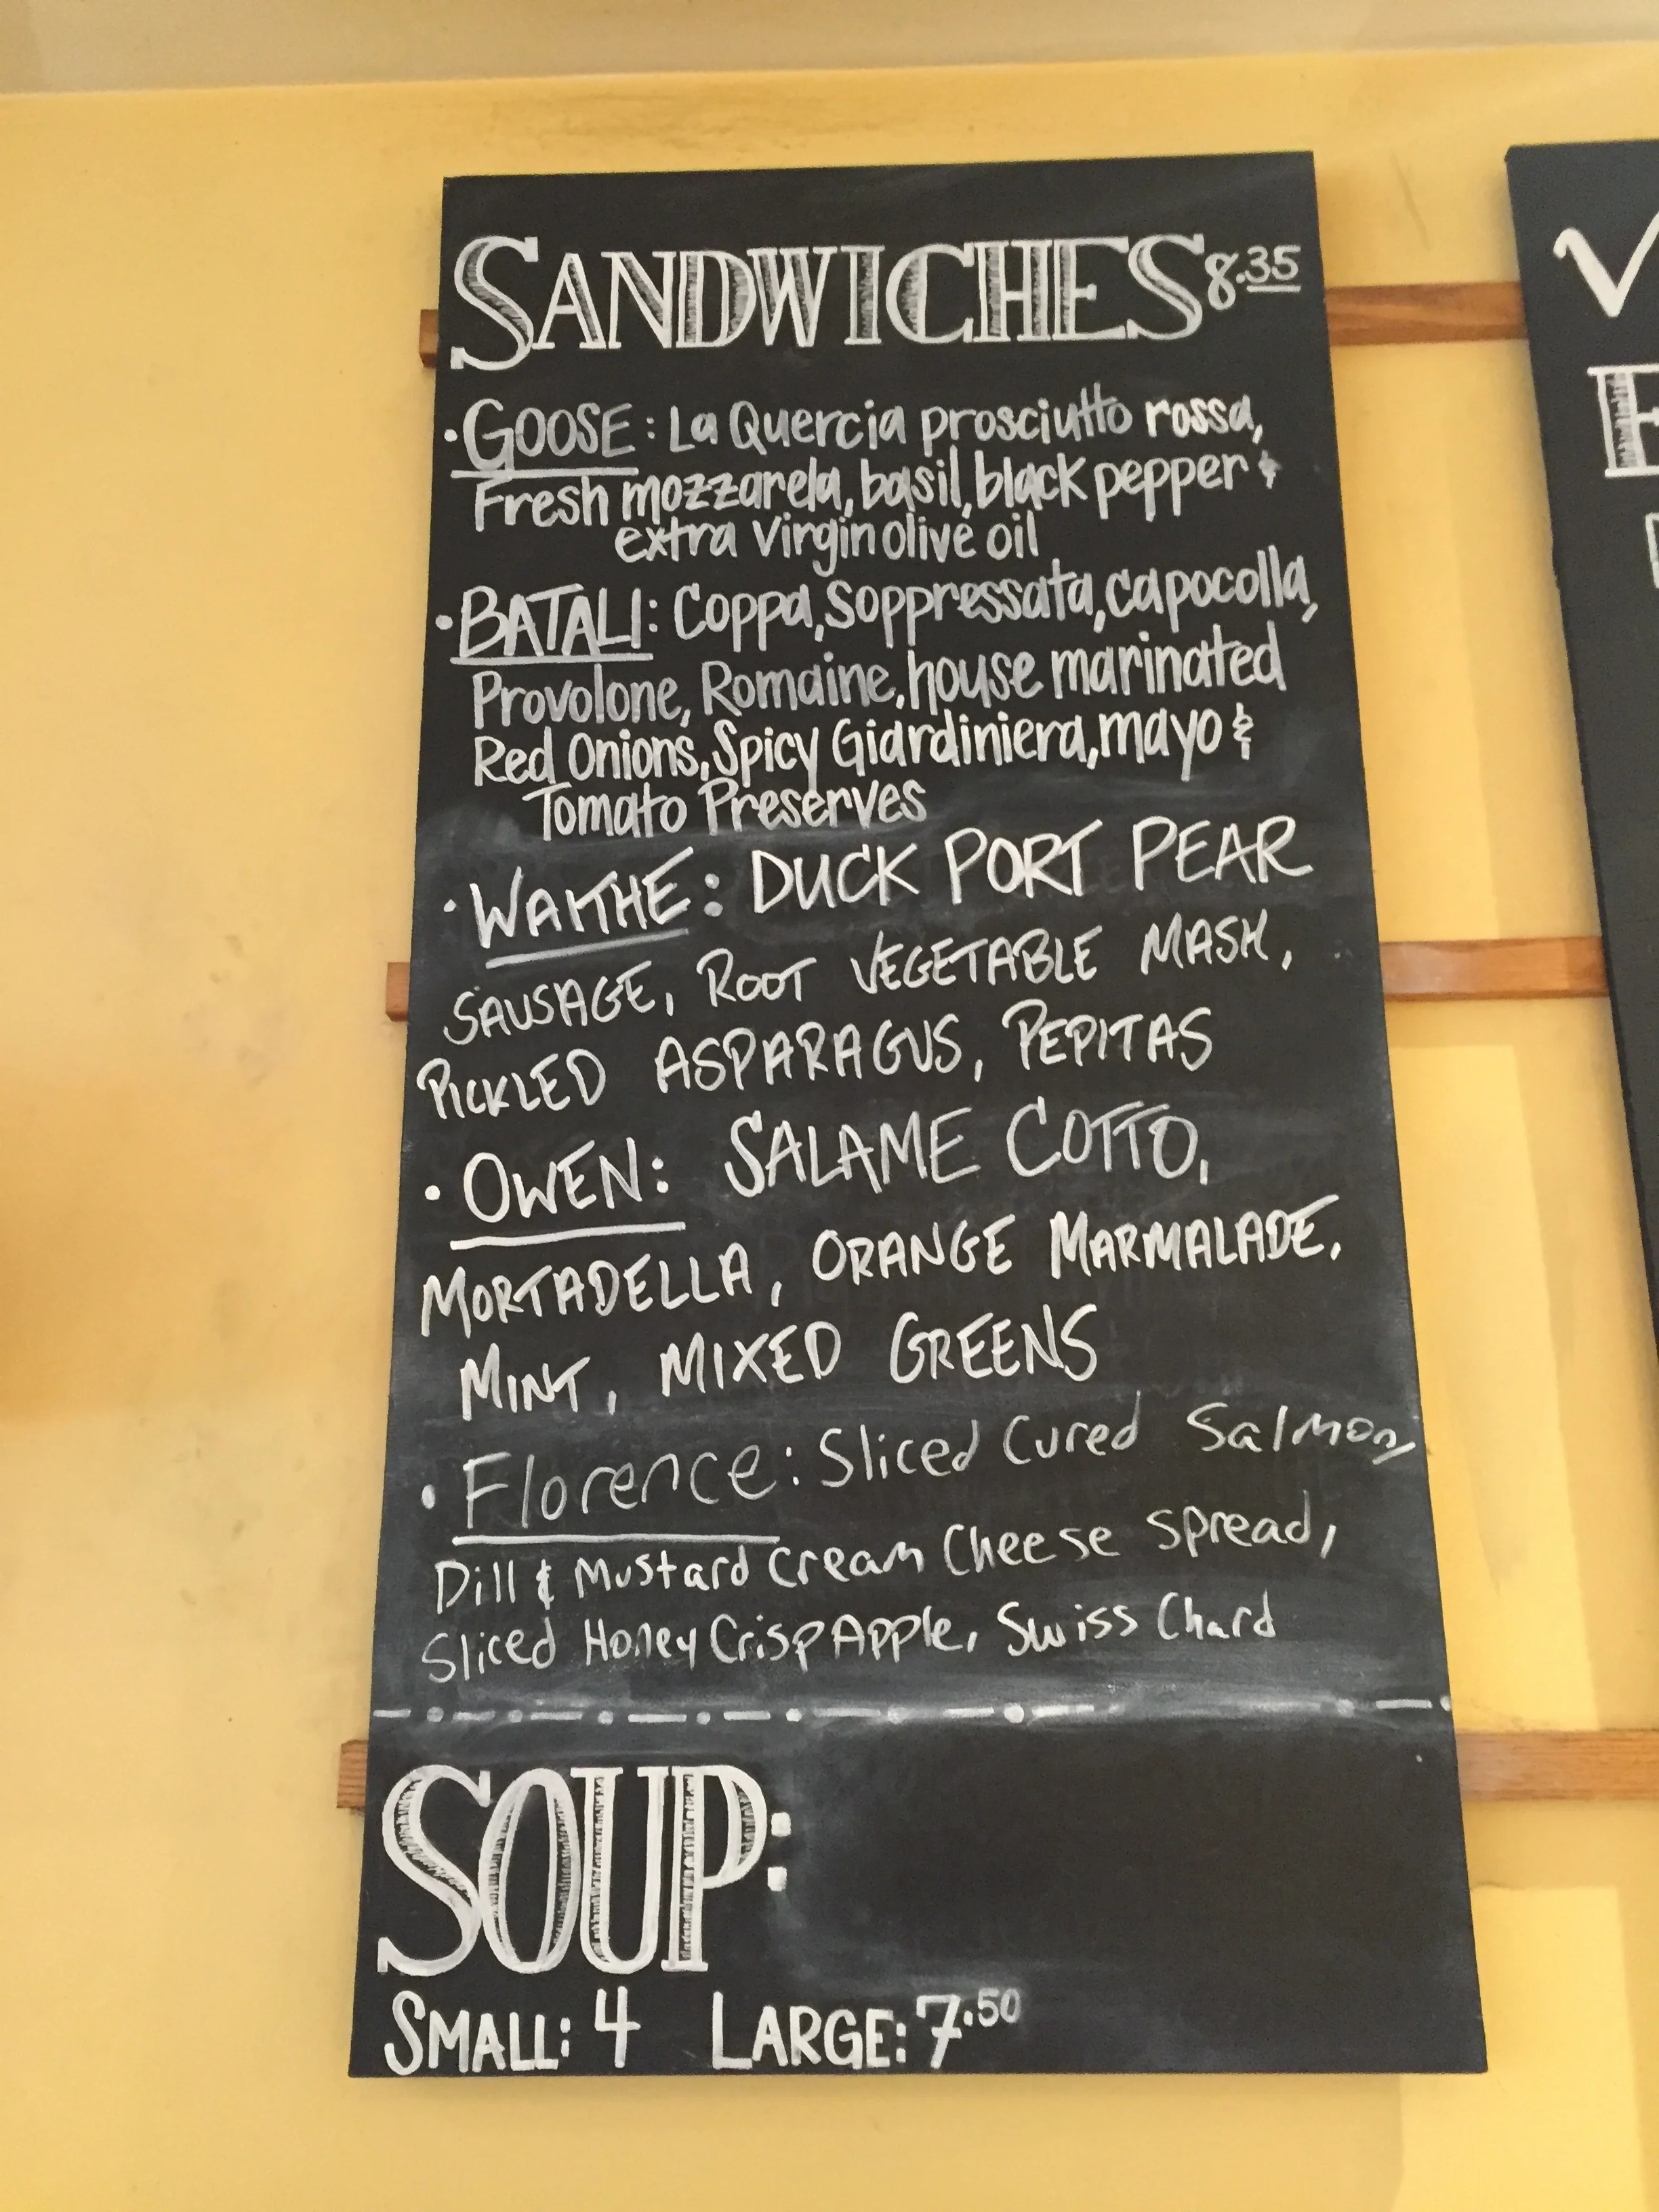 SANDWICHES 8.35
·GOOSE: La Quercia prosciutto rossa,
Fresh mozzarela, basil, black pepper &
extra virgin olive oil
·BATALI: Coppa, Soppressata, capocolla,
Provolone, Romaine, house marinated
Red Onions, Spicy Giardiniera, mayo &
Tomato Preserves
·WAITHE: DUCK PORT PEAR
SAUSAGE, ROOT VEGETABLE MASH,
PICKLED ASPARAGUS, PEPITAS
·OWEN: SALAME COTTO,
MORTADELLA, ORANGE MARMALADE,
MINT, MIXED GREENS
·Florence: Sliced Cured Salmon,
Dill & Mustard Cream Cheese Spread,
Sliced Honey Crisp Apple, Swiss Chard
SOUP:
SMALL: 4 LARGE: 7.50